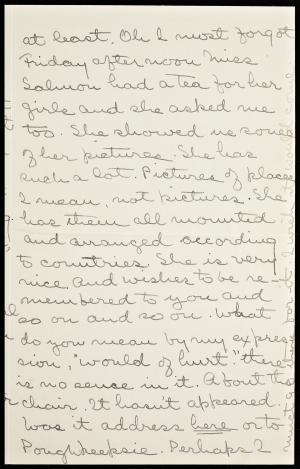 at least. Oh I most forgot
Friday afternoon Miss
Salmon had a tea for her
girls and she asked me
too. She showed us some
of her pictures. She has
such a lot. Pictures of places
I mean, not pictures. She
has them all mounted
and arranged according
to countries. She is very
nice and wishes to be re-
membered to you and
so on and so on. What
do you mean by my expres-
sion, "would of hurt." there
is no sence in it. About the
chair. It hasn't appeared.
Was it address here or to
Poughkeepsie. Perhaps I